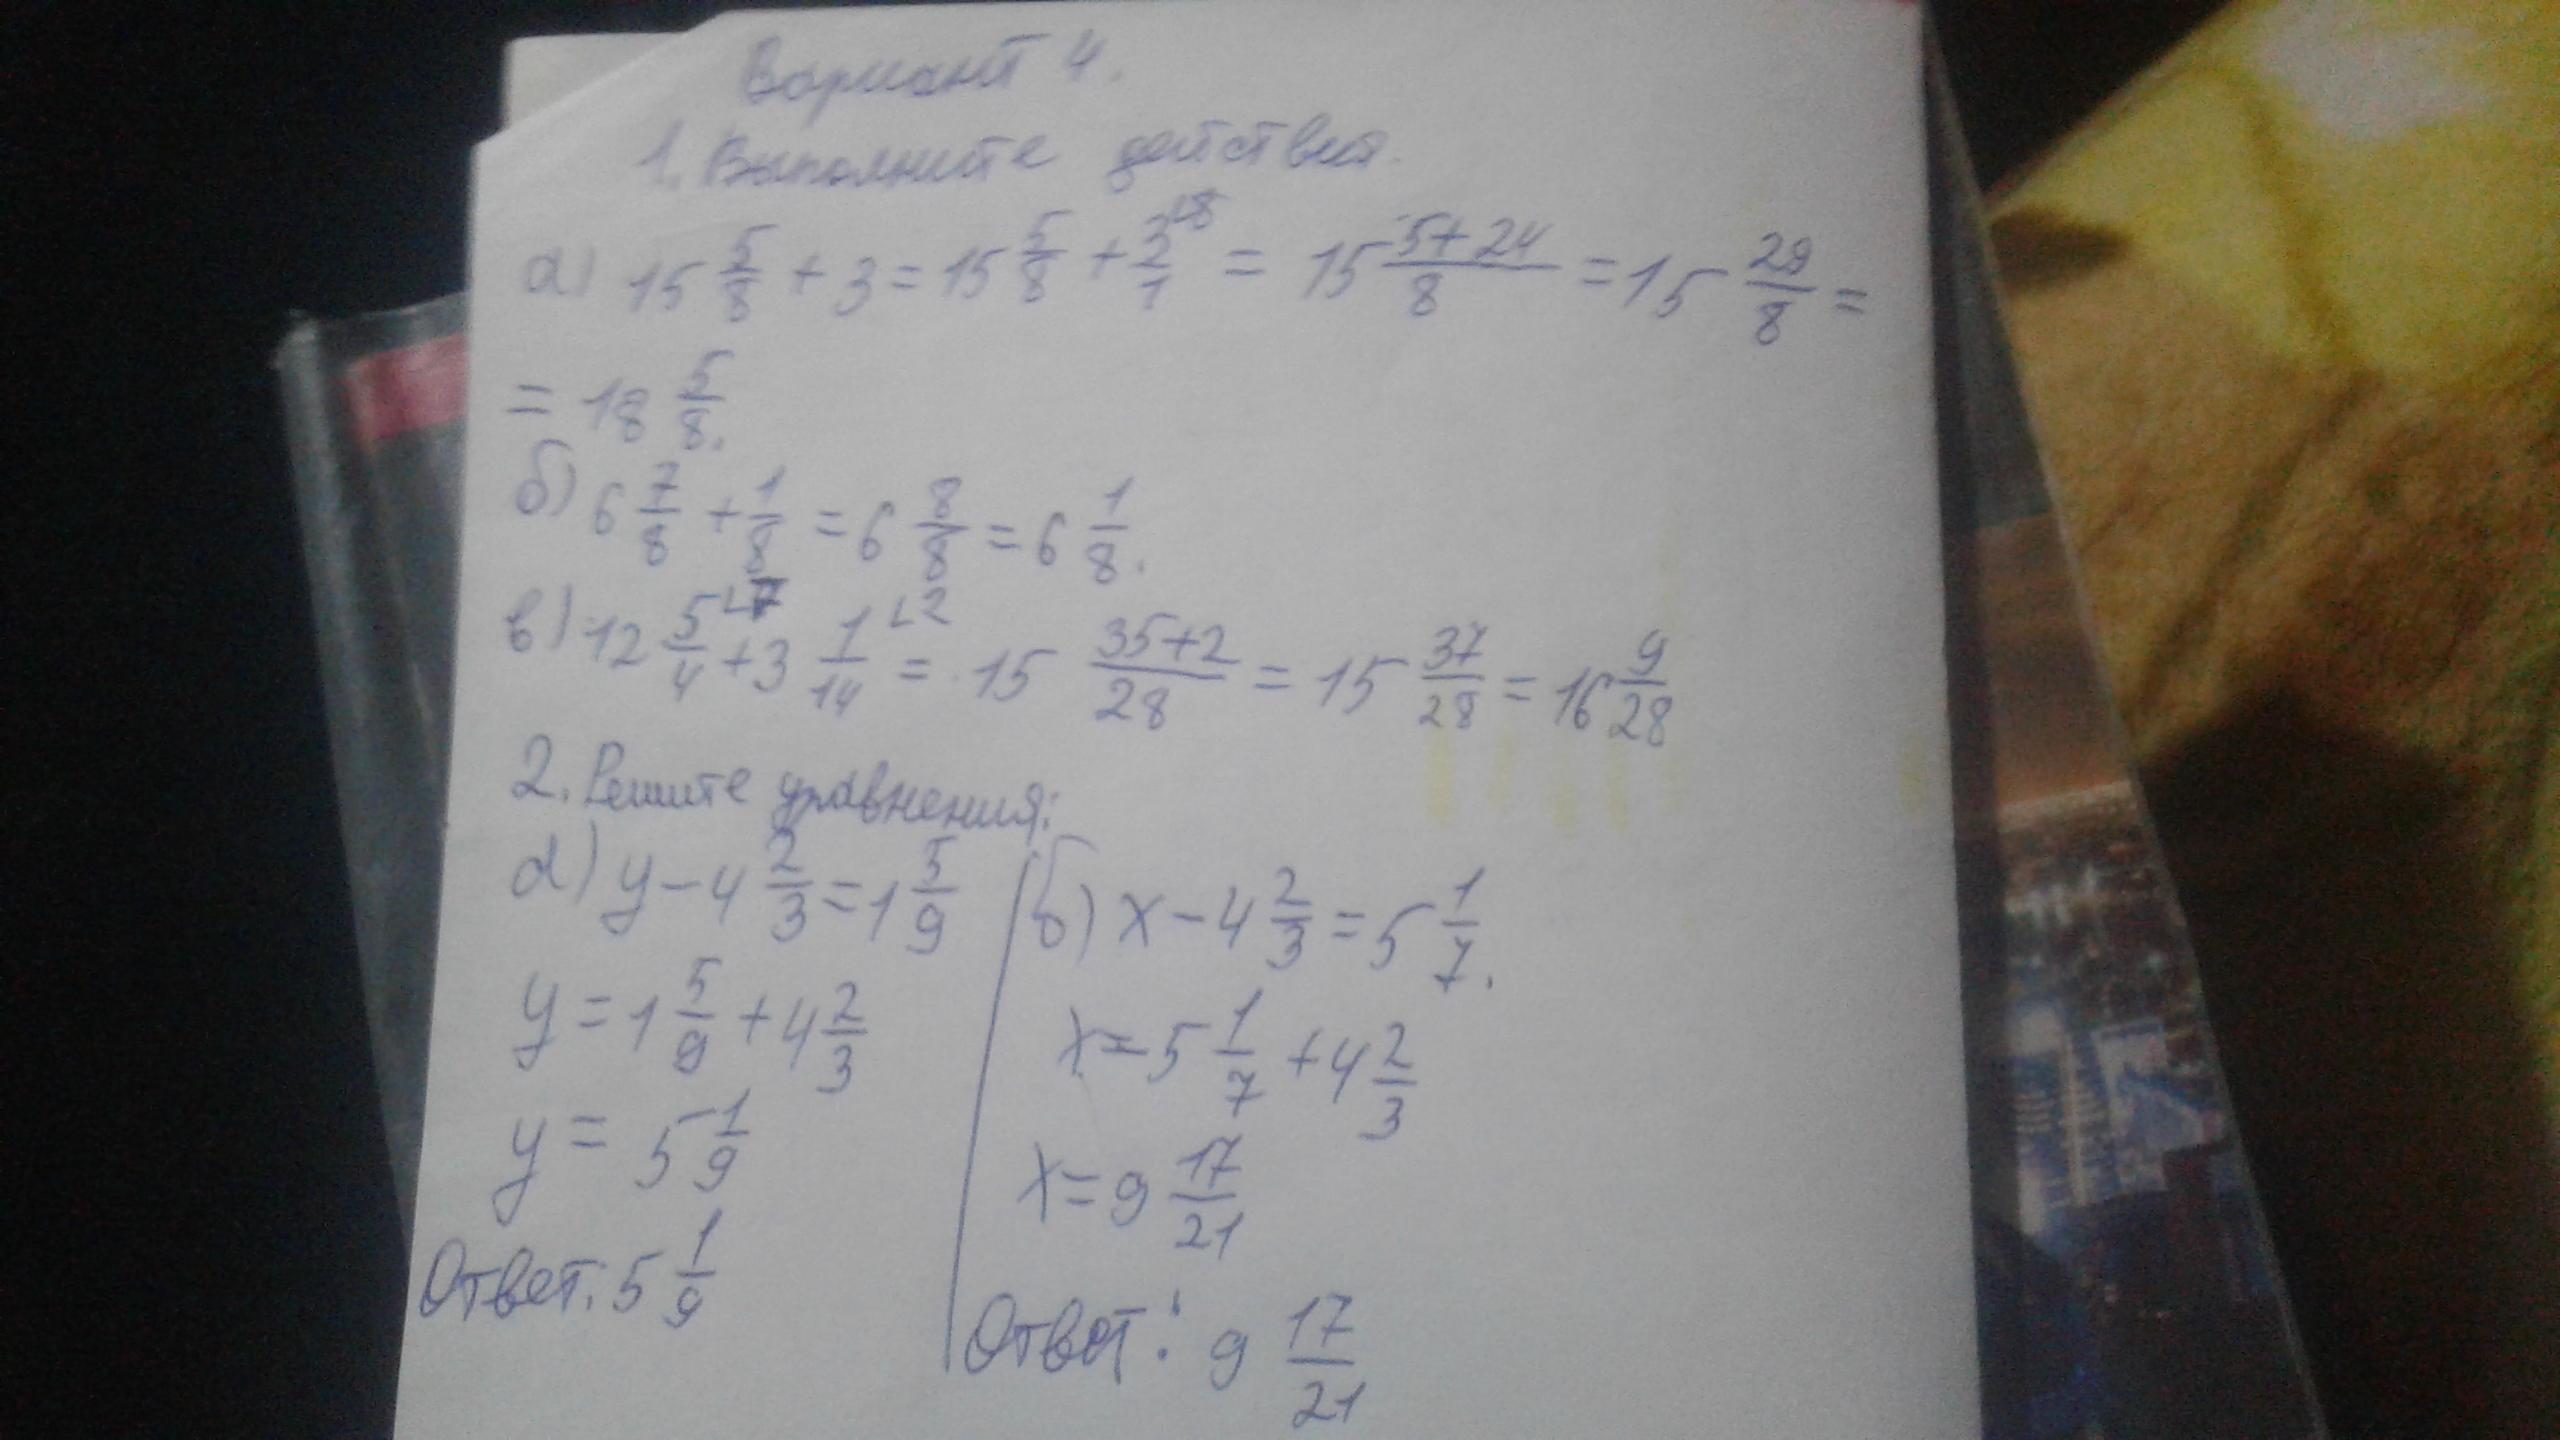 Вариант 4.
1. Выполните действия.
а) 15 5/8 + 3 = 15 5/8 + 3/1 ⌞8 = 15 (5+24)/8 = 15 29/8 =
= 18 5/8.
б) 6 7/8 + 1/8 = 6 8/8 = 6 1/8.
в) 12 5/4 ⌞7 + 3 1/14 ⌞2 = 15 (35+2)/28 = 15 37/28 = 16 9/28
2. Решите уравнения:
а) y - 4 2/3 = 1 5/9
y = 1 5/9 + 4 2/3
y = 5 1/9
Ответ: 5 1/9
б) x - 4 2/3 = 5 1/7.
x = 5 1/7 + 4 2/3
x = 9 17/21
Ответ: 9 17/21